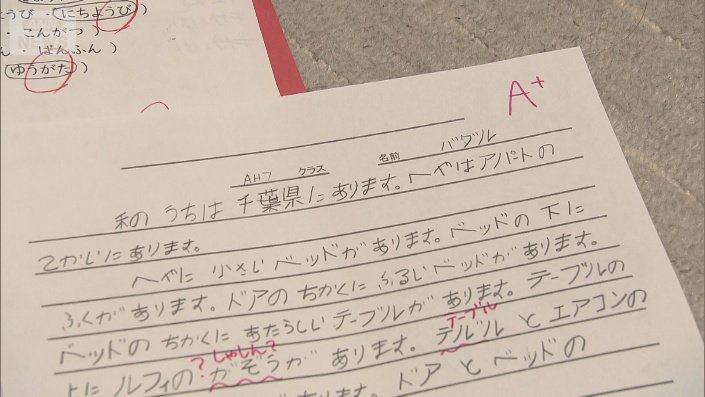 うび・にちようび)
・こんがつ)
ん・ばんふん)
ゆうがた)
A+
AH7 クラス 名前 バダル
私の うちは 千葉県に あります。へやは アパートの
2かいに あります。
へやに 小さい ベッドが あります。ベッドの 下に
ふくが あります。ドアの ちかくに ふるい ベッドが あります。
ベッドの ちかくに あたらしい テーブルが あります。テーブルの
?しゃしん? テーブル
上に ルフィの がぞうが あります。テルツル と エアコンの
あります。ドア と ベッドの